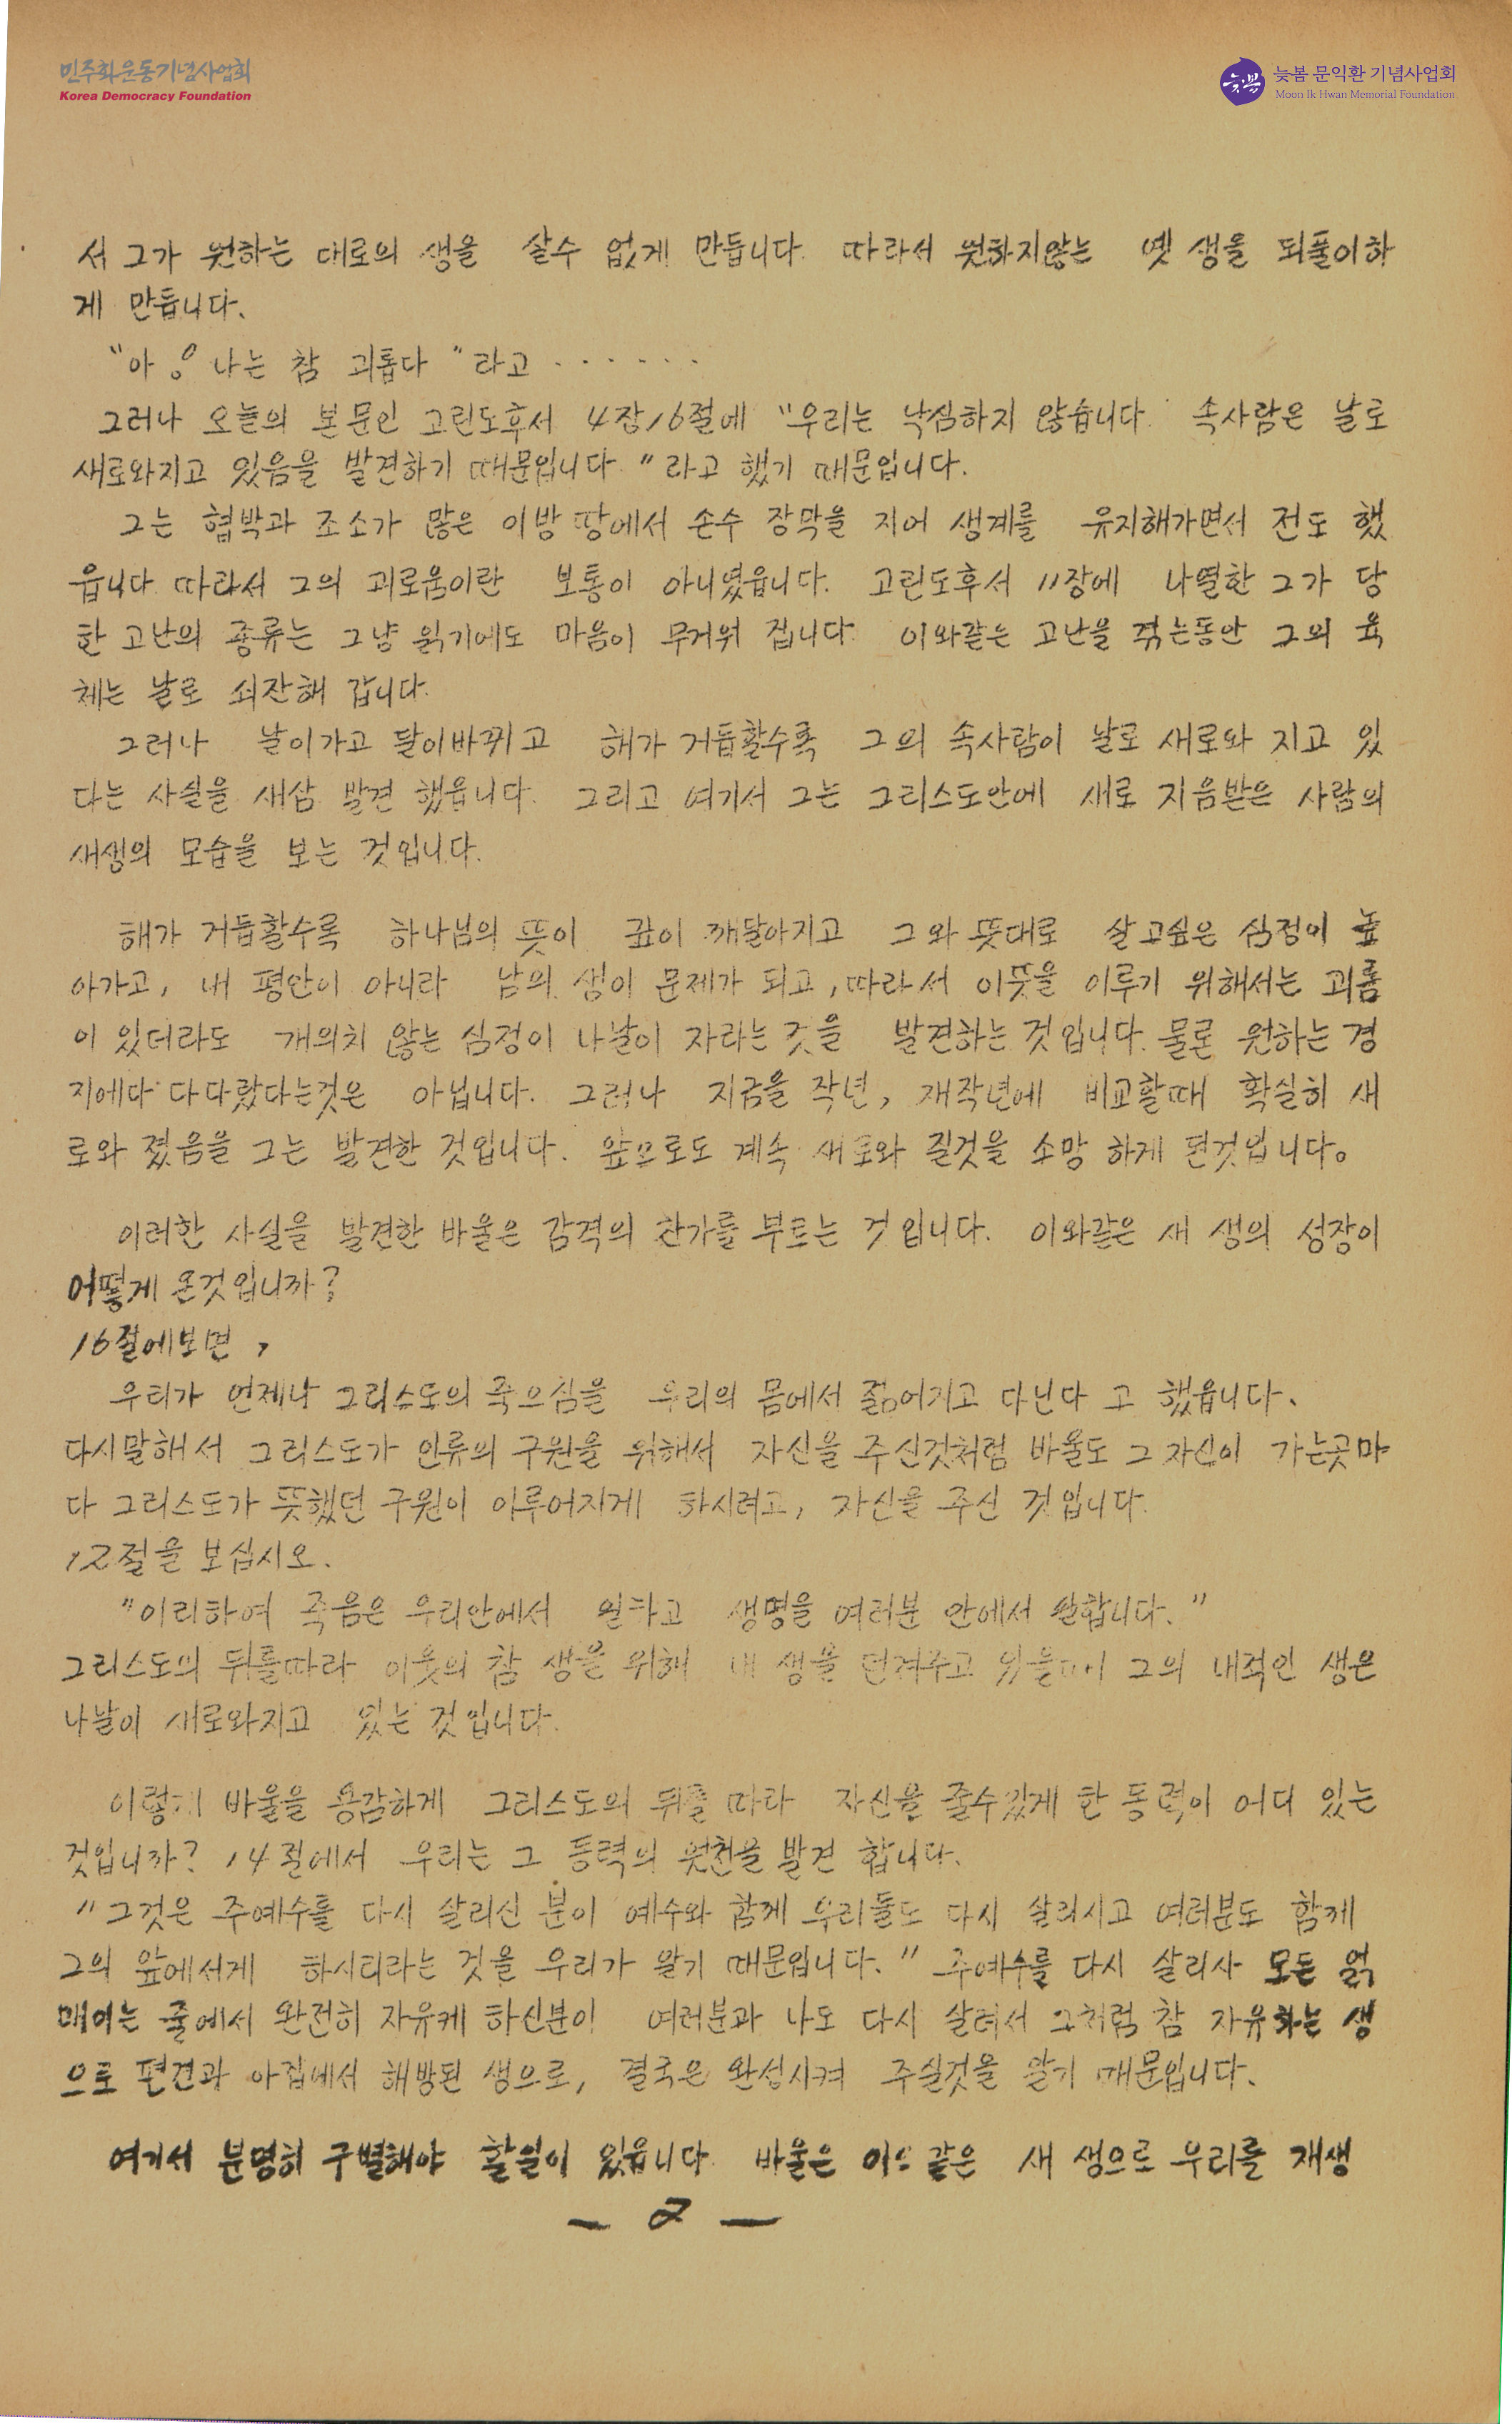 민주화운동기념사업회
Korea Democracy Foundation
늦봄
늦봄 문익환 기념사업회
Moon Ik Hwan Memorial Foundation
서 그가 원하는 대로의 생을 살수 없게 만듭니다. 따라서 원하지않는 옛 생을 되풀이하
게 만듭니다.
"아! 나는 참 괴롭다"라고 ......
그러나 오늘의 본문인 고린도후서 4장16절에 "우리는 낙심하지 않습니다. 속사람은 날로
새로와지고 있음을 발견하기 때문입니다."라고 했기 때문입니다.
그는 협박과 조소가 많은 이방 땅에서 손수 장막을 지어 생계를 유지해가면서 전도 했
읍니다. 따라서 그의 괴로움이란 보통이 아니였읍니다. 고린도후서 11장에 나열한 그가 당
한 고난의 종류는 그냥 읽기에도 마음이 무거워 집니다. 이와같은 고난을 겪는동안 그의 육
체는 날로 쇠잔해 갑니다.
그러나 날이가고 달이바뀌고 해가 거듭할수록 그의 속사람이 날로 새로와 지고 있
다는 사실을 새삼 발견 했읍니다. 그리고 여기서 그는 그리스도안에 새로 지음받은 사람의
새생의 모습을 보는 것입니다.
해가 거듭할수록 하나님의 뜻이 깊이 깨달아지고 그 와 뜻대로 살고싶은 심정이 높
아가고, 내 평안이 아니라 남의 생이 문제가 되고, 따라서 이뜻을 이루기 위해서는 괴롬
이 있더라도 개의치 않는 심정이 나날이 자라는 것을 발견하는 것입니다. 물론 원하는 경
지에다 다다랐다는것은 아닙니다. 그러나 지금을 작년, 재작년에 비교할때 확실히 새
로와 졌음을 그는 발견한 것입니다. 앞으로도 계속 새로와 질것을 소망 하게 된것입니다.
이러한 사실을 발견한 바울은 감격의 찬가를 부르는 것입니다. 이와같은 새 생의 성장이
어떻게 온것입니까?
16절에보면,
우리가 언제나 그리스도의 죽으심을 우리의 몸에서 짊어기고 다닌다 고 했읍니다.
다시말해서 그리스도가 인류의 구원을 위해서 자신을 주신것처럼 바울도 그 자신이 가는곳마
다 그리스도가 뜻했던 구원이 이루어지게 하시려고, 자신을 주신 것입니다.
12절을 보십시오.
"이리하여 죽음은 우리안에서 일하고 생명을 여러분 안에서 일합니다."
그리스도의 뒤를따라 이웃의 참 생을 위해 내 생을 던져주고 있을때 그의 내적인 생은
나날이 새로와지고 있는 것입니다.
이렇게 바울을 용감하게 그리스도의 뒤를 따라 자신을 줄수있게 한 동력이 어디 있는
것입니까? 14절에서 우리는 그 동력의 원천을 발견 합니다.
"그것은 주예수를 다시 살리신 분이 예수와 함께 우리들도 다시 살리시고 여러분도 함께
그의 앞에서게 하시리라는 것을 우리가 알기 때문입니다." 주예수를 다시 살리사 모든 얽
매이는 줄에서 완전히 자유케 하신분이 여러분과 나도 다시 살려서 그처럼 참 자유하는 생
으로 편견과 아집에서 해방된 생으로, 결국은 완성시켜 주실것을 알기 때문입니다.
여기서 분명히 구별해야 할일이 있읍니다. 바울은 이와 같은 새 생으로 우리를 재생
— 2 —